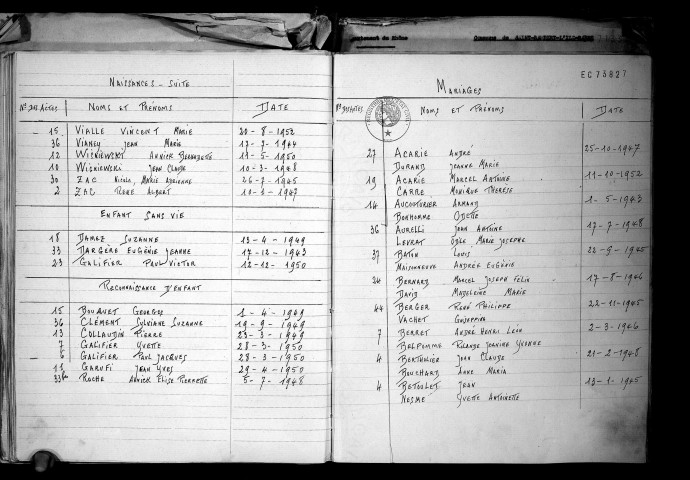 NAISSANCES - SUITE
Nº DES ACTES NOMS ET PRÉNOMS DATE
15 VIALLE VINCENT MARIE 20-8-1952
36 VIANEY JEAN MARIE 17-7-1944
12 WISNIEWSKI ANNICK BERNADETTE 11-5-1950
10 WISNIEWSKI JEAN CLAUDE 10-3-1948
30 ZAC NICOLE, MARIE ADRIENNE 26-7-1945
2 ZAC RENÉ ALBERT 10-1-1947
ENFANT SANS VIE
18 DAMEZ SUZANNE 13-4-1949
33 DARGÈRE EUGÉNIE JEANNE 17-12-1943
23 GALIFIER PAUL VICTOR 12-12-1950
RECONNAISSANCE D'ENFANT
15 BOUQUET GEORGES 1-4-1949
36 CLÉMENT SYLVIANE SUZANNE 19-9-1949
13 COLLAUDIN PIERRE 23-3-1949
7 GALIFIER YVETTE 28-3-1950
6 GALIFIER PAUL JACQUES 28-3-1950
11 GARUFI JEAN YVES 29-4-1950
33bis ROCHE ANNICK ELISE PIERRETTE 5-7-1948
EC75827
MARIAGES
Nº DES ACTES NOMS ET PRÉNOMS DATE
27 ACARIE ANDRÉ 25-10-1947
DURAND JEANNE MARIE
19 ACARIE MARCEL ANTOINE 11-10-1952
CARRE MONIQUE THÉRÈSE
14 AUCOUTURIER ARMAND 1-5-1943
BONHOMME ODETTE
36 AURELLI JEAN ANTOINE 17-7-1948
LEVRAT ODILE MARIE JOSEPHE
37 BATON LOUIS 22-9-1945
MAISONNEUVE ANDRÉE EUGÉNIE
24 BERNARD MARCEL JOSEPH FÉLIX 17-8-1946
DAVID MADELEINE MARIE
44 BERGER RENÉ PHILIPPE 22-11-1945
VACHET
7 BERRET ANDRÉ HENRI LÉON 2-3-1946
BELPOMME ROLANDE JEANINE YVONNE
4 BERTHOLIER JEAN CLAUDE 21-2-1948
BOUCHARD ANNE MARIA
4 BETOULET JEAN 13-1-1945
NESME YVETTE ANTOINETTE